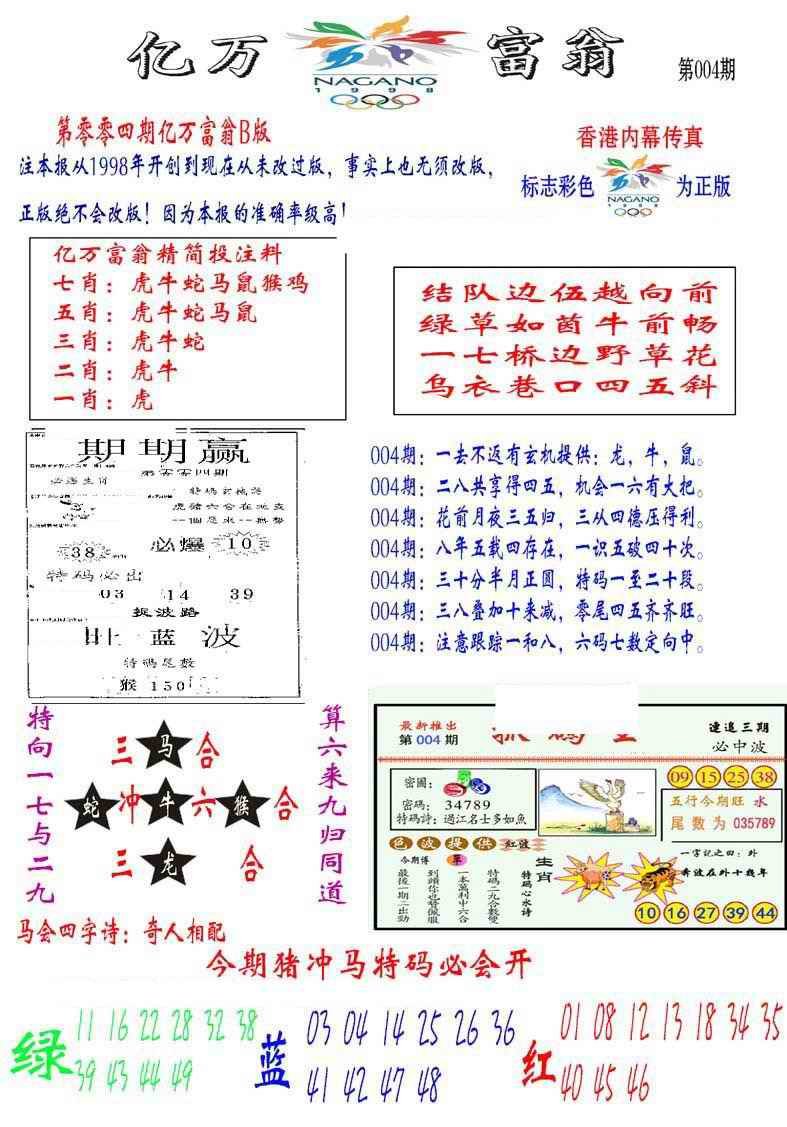 亿万
富翁
NAGANO
1998
第004期
第零零四期亿万富翁B版
注本报从1998年开创到现在从未改过版，事实上也无须改版，
正版绝不会改版！因为本报的准确率级高！
香港内幕传真
标志彩色
NAGANO
1998
为正版
亿万富翁精简投注料
七肖：虎牛蛇马鼠猴鸡
五肖：虎牛蛇马鼠
三肖：虎牛蛇
二肖：虎牛
一肖：虎
结队边伍越向前
绿草如茵牛前畅
一七桥边野草花
乌衣巷口四五斜
期期赢
第零零四期
必爆
10
38
特码必出
03 14 39
捉波路
旺蓝波
特碼尾数
猴150
004期：一去不返有玄机提供：龙，牛，鼠。
004期：二八共享得四五，机会一六有大把。
004期：花前月夜三五归，三从四德压得利。
004期：八年五载四存在，一识五破四十次。
004期：三十分半月正圆，特码一至二十段。
004期：三八叠加十来减，零尾四五齐齐旺。
004期：注意跟踪一和八，六码七数定向中。
特向一七与二九
三马合
蛇冲牛六猴合
三龙合
算六来九归同道
马会四字诗：奇人相配
最新推出
第004期
連追三期
必中波
密圖：
密碼：34789
特碼詩：過江名士多如魚
09 15 25 38
五行今期旺 水
尾数为 035789
色波提供 红波
今期博 草
最後一期二出勁
到頭你也替佩服
一本萬利中六合
特碼二九合數雙
特碼心水诗
生肖
一字記之曰：外
奔波在外十幾年
10 16 27 39 44
今期猪冲马特码必会开
绿
11 16 22 28 32 38
39 43 44 49
蓝
03 04 14 25 26 36
41 42 47 48
红
01 08 12 13 18 34 35
40 45 46